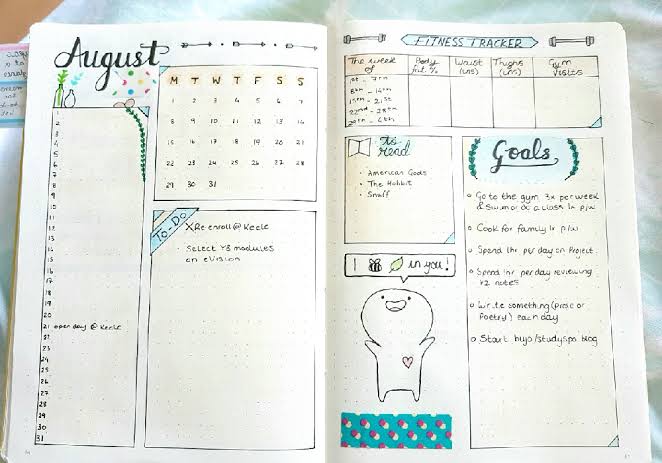 August
1
2
3
4
5
6
7
8
9
10
11
12
13
14
15
16
17
18
19
20
21 open day @ Keele
22
23
24
25
26
27
28
29
30
31
M T W T F S S
1 2 3 4 5 6 7
8 9 10 11 12 13 14
15 16 17 18 19 20 21
22 23 24 25 26 27 28
29 30 31
To-Do
X Re enroll @ Keele
· Select Y3 modules
on eVision
FITNESS TRACKER
The week of
Body fat %
Waist (ins)
Thighs (ins)
Gym visits
1st - 7th
8th - 14th
15th - 21st
22nd - 28th
29th - 4th
To read
· American Gods
· The Hobbit
· Snuff
I in you!
Goals
Go to the gym 3x per week
& swim or do a class 1x p/w
Cook for family 1x p/w
Spend 1hr per day on Project
Spend 1hr per day reviewing
Y2 notes
Write something (prose or
Poetry) each day
Start bujo/studyspo blog